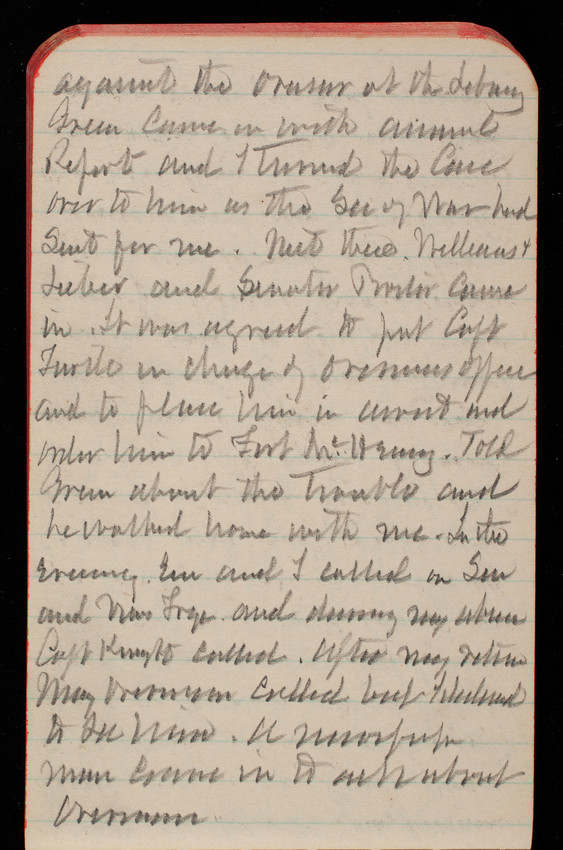 against the at the Library
Green came in with annual
Report and I turned the Case
over to him as the Sec of War had
Sent for me. Met there Williams &
Lieber and Senator Proctor came
in. It was agreed to put Capt
Turtle in charge of Overmans office
and to place him in arrest and
order him to Fort McHenry. Told
Green about the trouble and
he walked home with me. In the
Evening Em and I called on Gen
and Mrs and during my absence
Capt Knight called. After my return
Maj Overman called but I declined
to see him. A newspaper
man came in to ask about
Overman